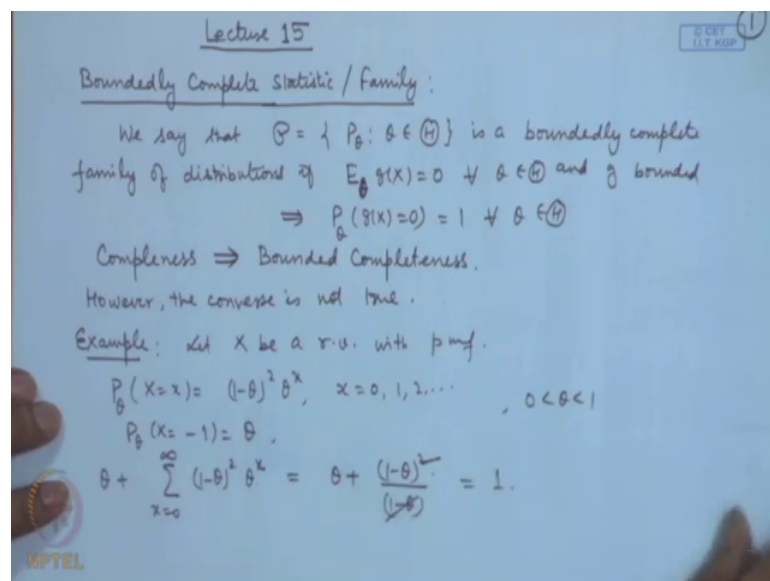 Lecture 15
© CET
I.I.T. KGP
1
Boundedly Complete Statistic / Family :
We say that 𝒫 = { P_θ : θ ∈ Ⓗ } is a boundedly complete
family of distributions if E_θ g(X) = 0 ∀ θ ∈ Ⓗ and g bounded
⇒ P_θ (g(X) = 0) = 1 ∀ θ ∈ Ⓗ
Compleness ⇒ Bounded Completeness.
However, the converse is not true.
Example : Let X be a r.v. with pmf.
P_θ (X = x) = (1-θ)² θ^x, x = 0, 1, 2 ... , 0 < θ < 1
P_θ (X = -1) = θ ,
θ + ∑_{x=0}^{∞} (1-θ)² θ^x = θ + (1-θ)²/(1-θ) = 1.
NPTEL